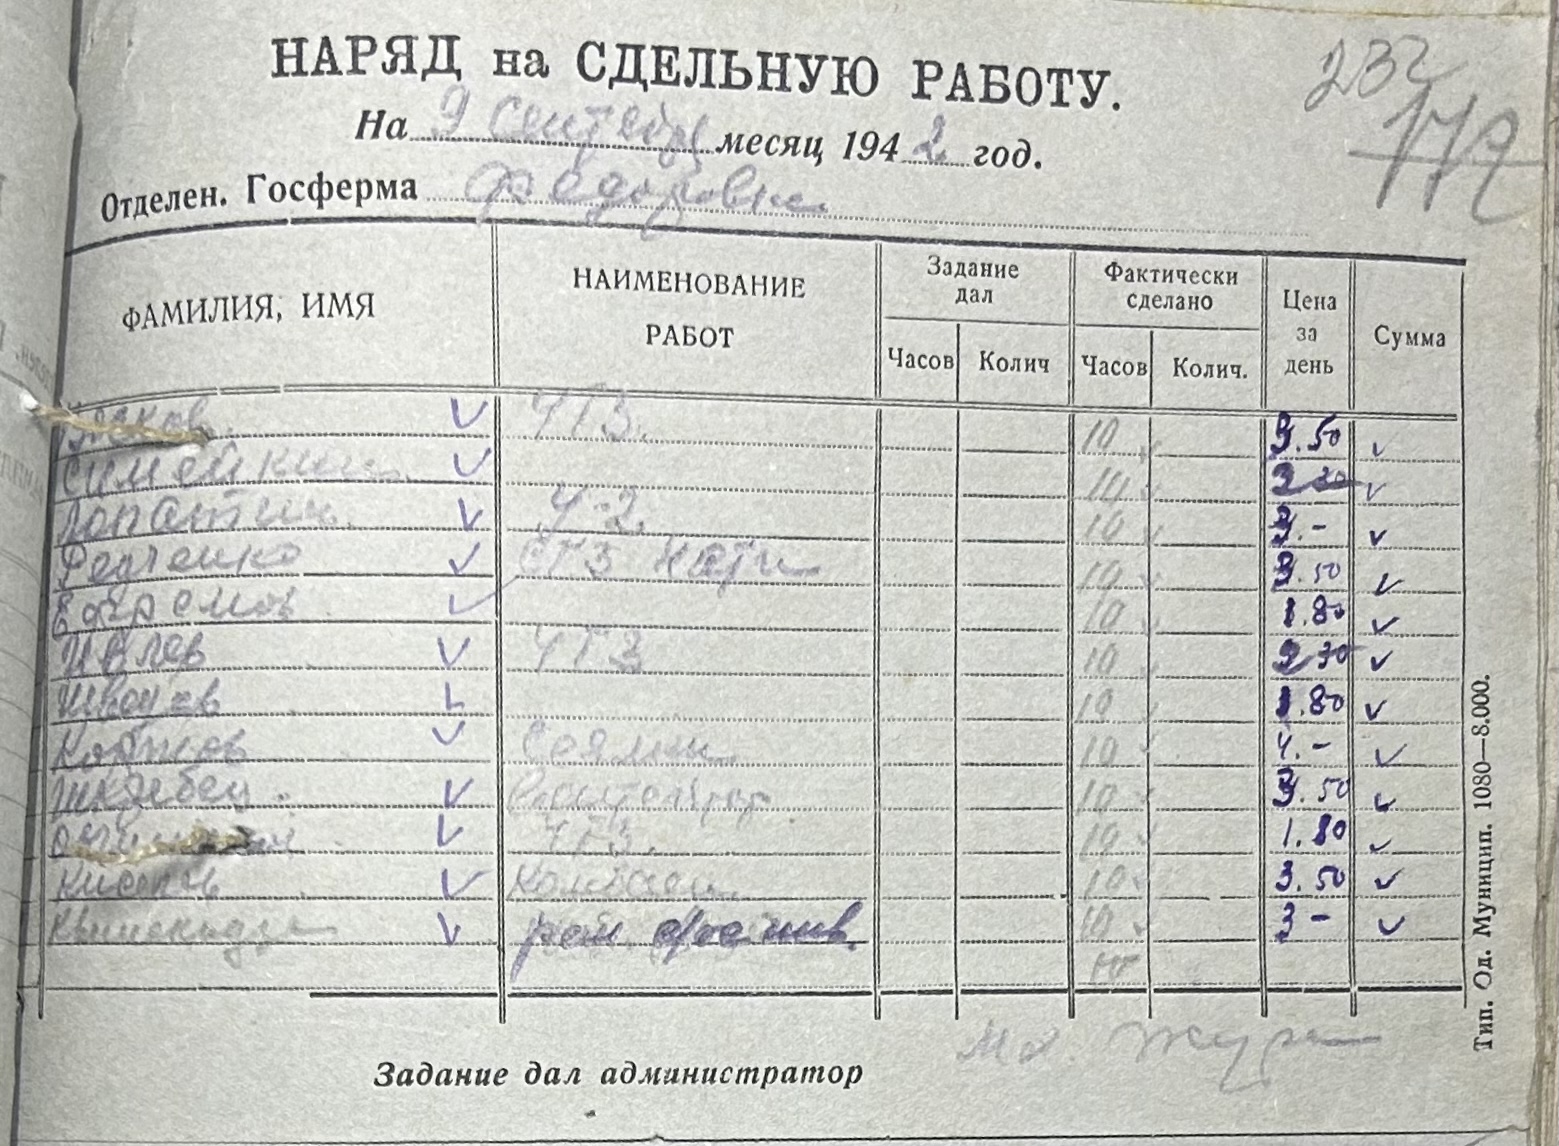 232
172
НАРЯД на СДЕЛЬНУЮ РАБОТУ.
На 9 сентября месяц 1942 год.
Отделен. Госферма Федоровка
ФАМИЛИЯ, ИМЯ НАИМЕНОВАНИЕ РАБОТ Задание дал Фактически сделано Цена за день Сумма
Часов Колич Часов Колич.
Усков ЧТЗ. 10 3.50
Симейкин 10 2 30
Лопатин У-2 10 3.-
Федченко СТЗ Нати 10 3.50
Ефремов 10 1.80
Ивлев ЧТЗ 10 2 30
Швачев 10 1.80
Коптев Сеялки 10 4.-
10 3.50
ЧТЗ. 10 1.80
Комбайн 10 3.50
рем. 10 3 -
10
Задание дал администратор
Тип. Од. Муницип. 1080—8.000.